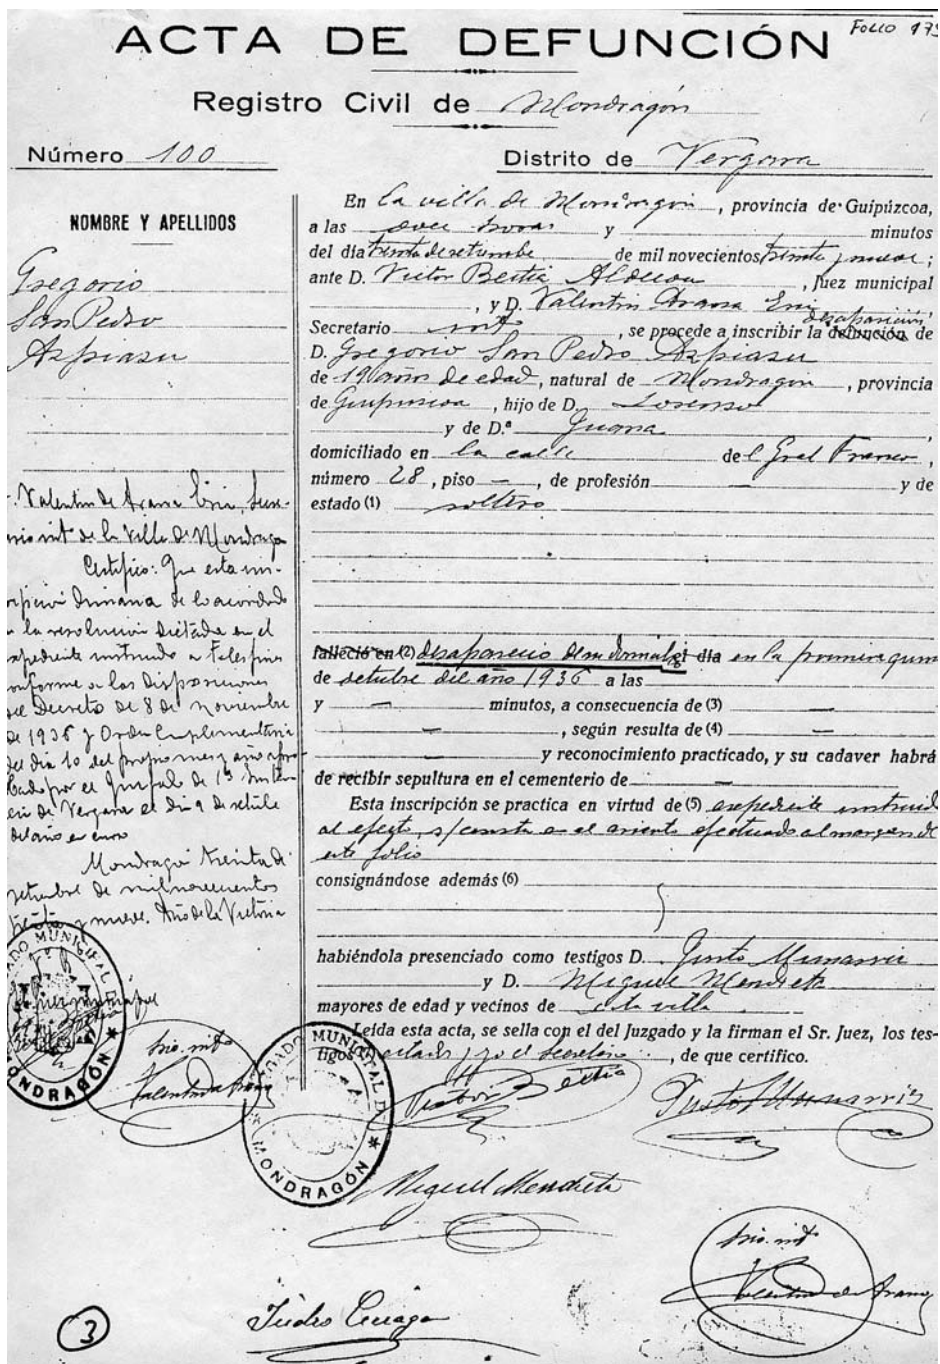 FOLIO 179
ACTA DE DEFUNCIÓN
Registro Civil de Mondragón
Número 100
Distrito de Vergara
NOMBRE Y APELLIDOS
Gregorio
San Pedro
Azpiasu
Valentin de Arana, Secre-
int de la Villa de Mondragon
Certifico: Que esta ins-
dimana de lo acordado
la resolucion dictada en el
instruido a
conforme a las disposiciones
del Decreto de 8 de Noviembre
de 1936 y Orden Complementaria
del dia 10 del propio mes y año
por el de 1ª
de Vergara el dia 9 de
del año en curso
Mondragon treinta de
de mil novecientos
y nueve. Año de la Victoria
En la villa de Mondragon, provincia de Guipúzcoa,
a las once horas y minutos
del dia treinta de setiembre de mil novecientos treinta y nueve;
ante D. Victor Beitia, Juez municipal
, y D. Valentin Arana
desaparición
Secretario int°, se procede a inscribir la defunción de
D. Gregorio San Pedro Azpiasu
de 19 años de edad, natural de Mondragon, provincia
de Guipuscoa, hijo de D. Lorenso
y de D.ª Juana,
domiciliado en la calle del Gral Franco,
número 28, piso —, de profesión — y de
estado (1) soltero
falleció en (2) desaparecio de el día en la primera
de octubre del año 1936 a las
y — minutos, a consecuencia de (3) —
—, según resulta de (4) —
— y reconocimiento practicado, y su cadaver habrá
de recibir sepultura en el cementerio de —
Esta inscripción se practica en virtud de (5) expediente instruido
al efecto, s/ consta en el asiento efectuado al margen de
este folio
consignándose además (6)
habiéndola presenciado como testigos D. Justo Munarriz
y D. Miguel Mendieta
mayores de edad y vecinos de esta villa
Leída esta acta, se sella con el del Juzgado y la firman el Sr. Juez, los tes-
tigos citados y yo el secretario, de que certifico.
JUZGADO MUNICIPAL DE MONDRAGÓN
Srio. int°
Valentin de Arana
JUZGADO MUNICIPAL DE MONDRAGÓN
Victor Beitia
Justo Munarriz
Miguel Mendieta
Srio. int°
Valentin de Arana
3